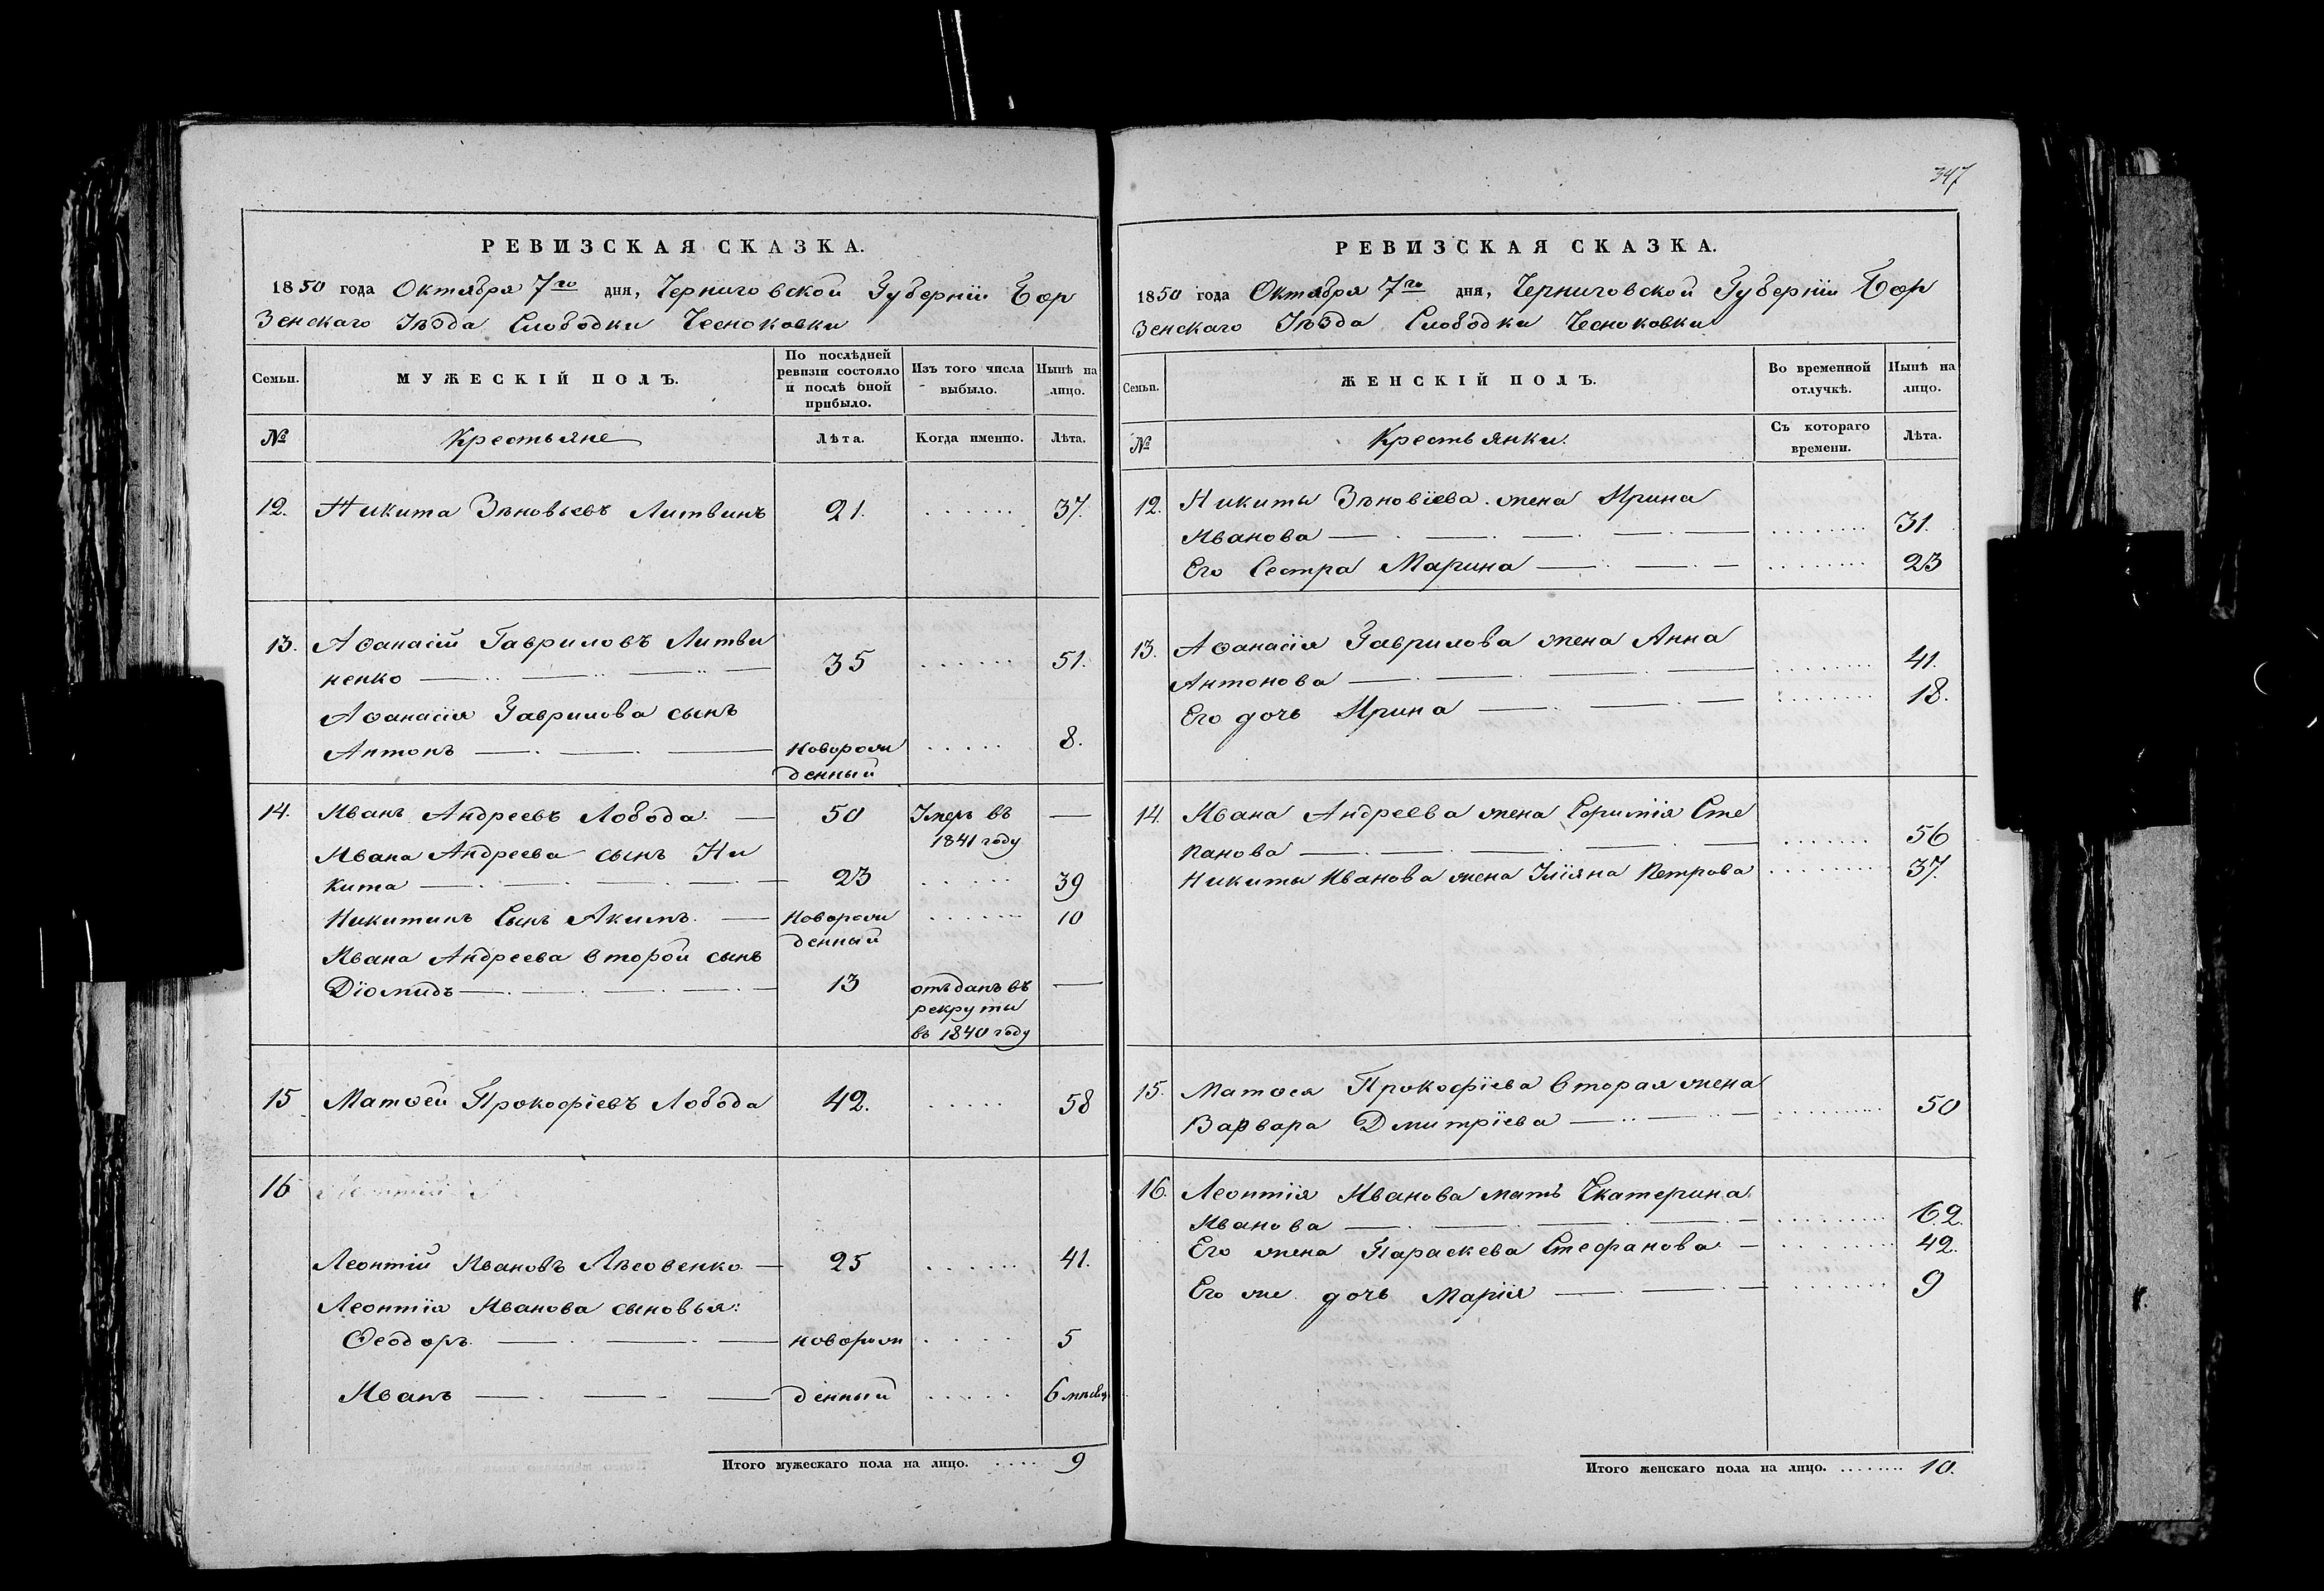 РЕВИЗСКАЯ СКАЗКА.
1850 года Октября 7го дня, Черниговской Губернiи Бор
зенскаго Уѣзда Слободки Чесноковки
Семьи.
МУЖЕСКІЙ ПОЛЪ.
По послѣдней ревизіи состояло и послѣ оной прибыло.
Изъ того числа выбыло.
Нынѣ на лицо.
№
Крестьяне
Лѣта.
Когда именно.
Лѣта.
12. Никита Зѣновьевъ Литвинъ 21. 37.
13. Аѳанасій Гавриловъ Литви
ненко 35 51.
Аѳанасія Гаврилова сынъ
Антонъ новорож 8.
денный
14. Иванъ Андреевъ Лобода 50 Умеръ въ —
1841 году
Ивана Андреева сынъ Ни
кита 23 39
Никитинъ Сынъ Акимъ новорож 10
денный
Ивана Андреева второй сынъ
Діомидъ 13 отъданъ въ —
рекруты
въ 1840 году
15 Матѳей Прокофіевъ Лобода 42. 58
16
Леонтій Ивановъ Лѣсовенко 25 41.
Леонтія Иванова сыновья:
Ѳеодоръ новорож 5
Иванъ денный 6 мѣсяц
Итого мужескаго пола на лицо. 9
347
РЕВИЗСКАЯ СКАЗКА.
1850 года Октября 7го дня, Черниговской Губерніи Бор
зенскаго Уѣзда Слободки Чесноковки
Семьи.
ЖЕНСКІЙ ПОЛЪ.
Во временной отлучкѣ.
Нынѣ на лицо.
№
Крестьянки.
Съ котораго времени.
Лѣта.
12. Никиты Зѣновіева жена Ирина
Иванова 31.
Его Сестра Марина 23
13. Аѳанасія Гаврилова жена Анна
Антонова 41.
Его дочь Ирина 18.
14. Ивана Андреева жена Ефимія Сте
панова 56
Никиты Иванова жена Уліяна Петрова 37.
15. Матѳея Прокофіева вторая жена
Варвара Дмитріева 50
16. Леонтія Иванова мать Екатерина
Иванова 62.
Его жена Параскева Стефанова 42.
Его же дочь Марія 9
Итого женскаго пола на лицо. 10.